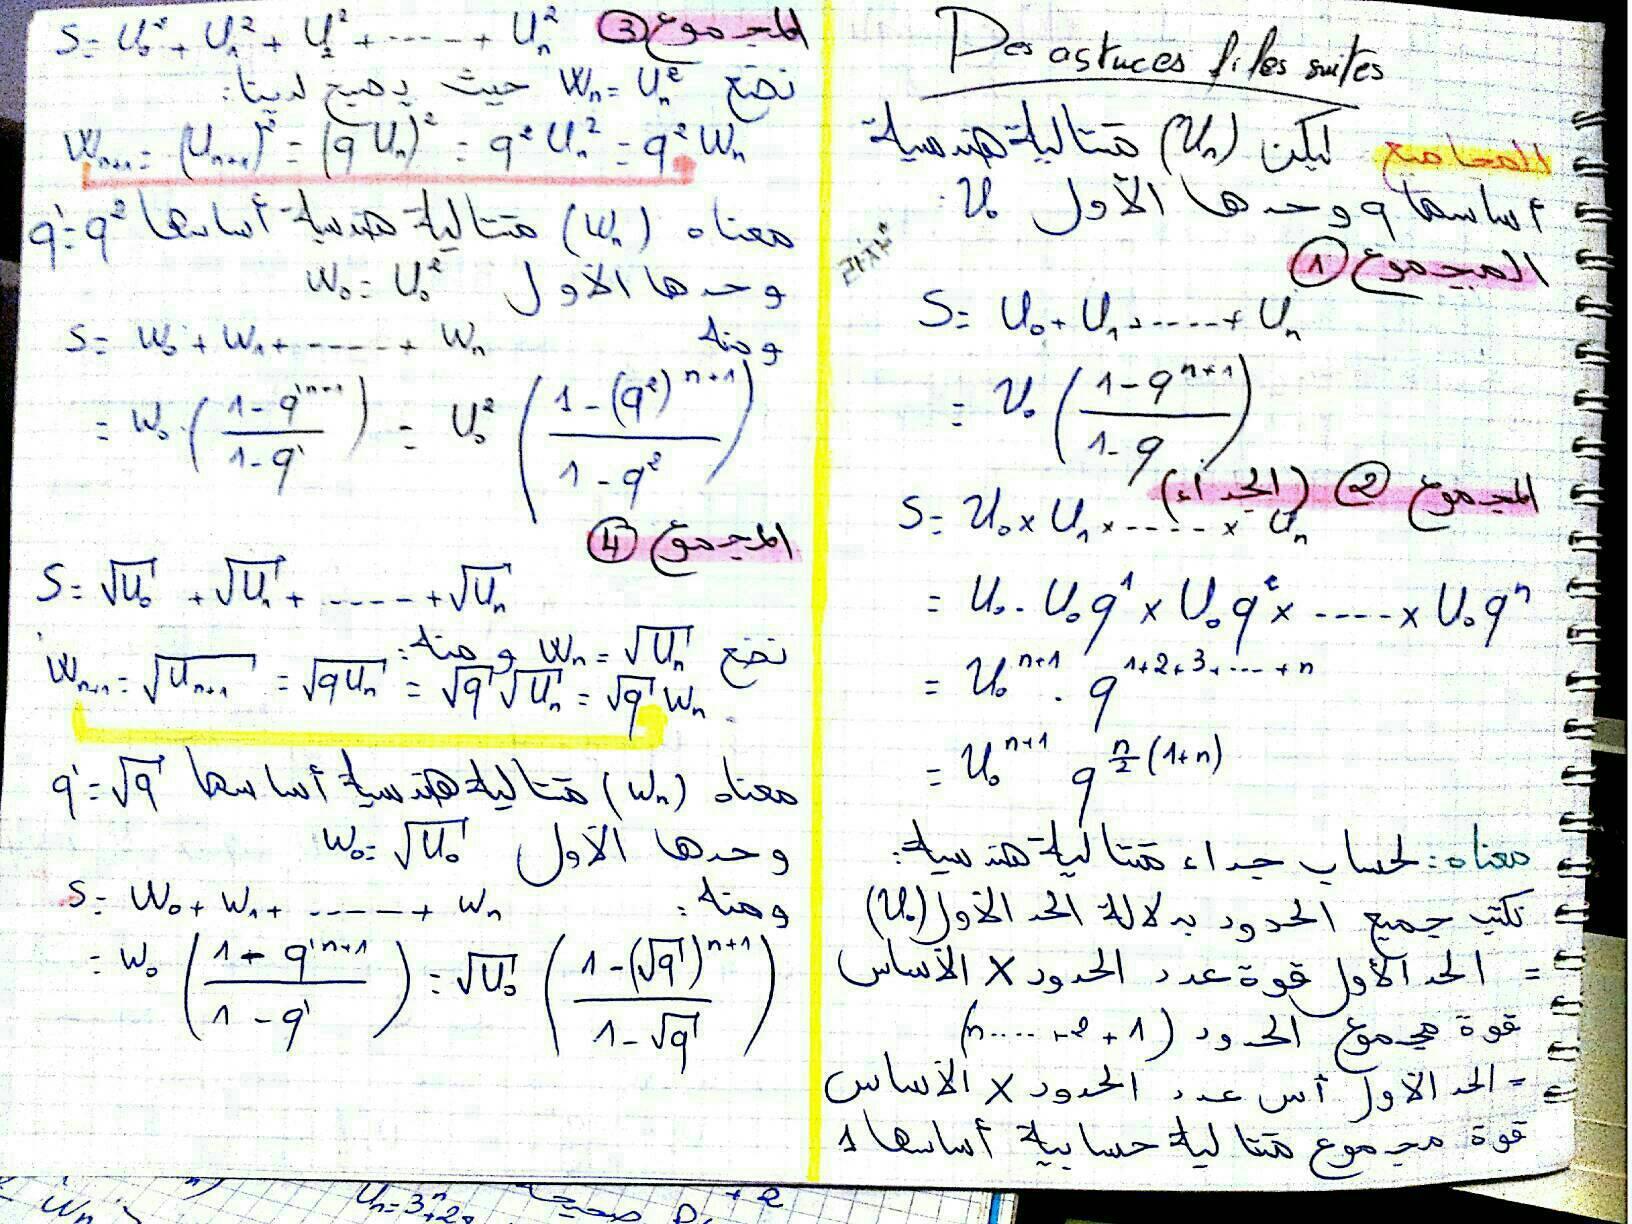 Des astuces p. les suites
المجاميع ليكن (Uₙ) متتالية هندسية
أساسها q وحدها الأول U₀.
المجموع ①
S = U₀ + U₁ + ..... + Uₙ
= U₀ ( (1 - qⁿ⁺¹) / (1 - q) )
المجموع ② (الجداء)
S = U₀ × U₁ × ..... × Uₙ
= U₀ . U₀ q¹ × U₀ q² × ..... × U₀ qⁿ
= U₀ⁿ⁺¹ . q^(1+2+3+....+n)
= U₀ⁿ⁺¹ q^(n/2 (1+n))
معناه: لحساب جداء متتالية هندسية:
نكتب جميع الحدود بدلالة الحد الأول (U₀)
= الحد الأول قوة عدد الحدود × الأساس
قوة مجموع الحدود (1 + 2 + ..... n)
= الحد الأول أس عدد الحدود × الأساس
قوة مجموع متتالية حسابية أساسها 1
المجموع ③ S = U₀² + U₁² + U₂² + ..... + Uₙ²
نضع Wₙ = Uₙ² حيث يصبح لدينا:
Wₙ₊₁ = (Uₙ₊₁)² = (q Uₙ)² = q² Uₙ² = q² Wₙ
معناه (Wₙ) متتالية هندسية أساسها q' = q²
وحدها الأول W₀ = U₀²
ومنه S = W₀ + W₁ + ..... + Wₙ
= W₀ ( (1 - q'ⁿ⁺¹) / (1 - q') ) = U₀² ( (1 - (q²)ⁿ⁺¹) / (1 - q²) )
المجموع ④
S = √U₀ + √U₁ + ..... + √Uₙ
نضع Wₙ = √Uₙ ومنه:
Wₙ₊₁ = √Uₙ₊₁ = √qUₙ = √q √Uₙ = √q Wₙ
معناه (Wₙ) متتالية هندسية أساسها q' = √q
وحدها الأول W₀ = √U₀
ومنه: S = W₀ + W₁ + ..... + Wₙ
= W₀ ( (1 - q'ⁿ⁺¹) / (1 - q') ) = √U₀ ( (1 - (√q)ⁿ⁺¹) / (1 - √q) )